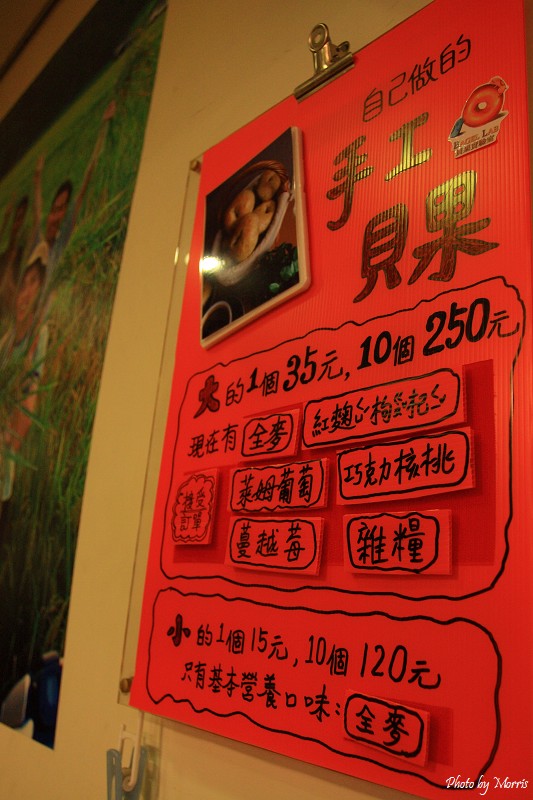 自己做的
手工
貝果
BAGEL LAB
大的1個35元,10個250元
現在有 全麥 紅麴心枸杞心
接受訂單
萊姆葡萄 巧克力核桃
蔓越莓 雜糧
小的1個15元,10個120元
只有基本營養口味: 全麥
Photo by Morris